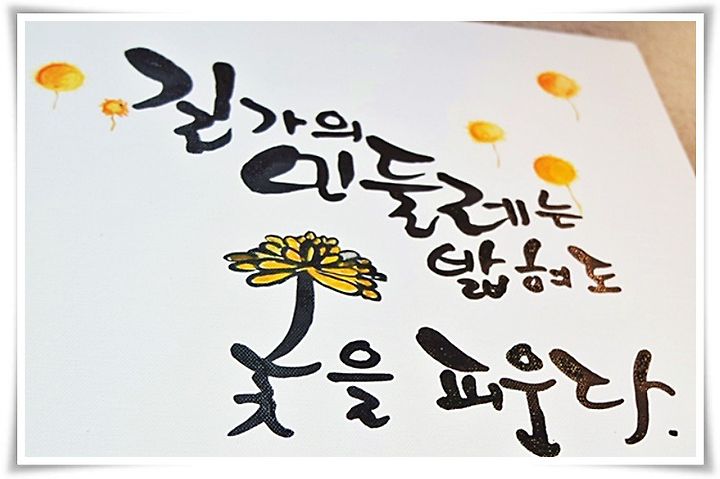 길가의
민들레는
밟혀도
꽃을 피운다.